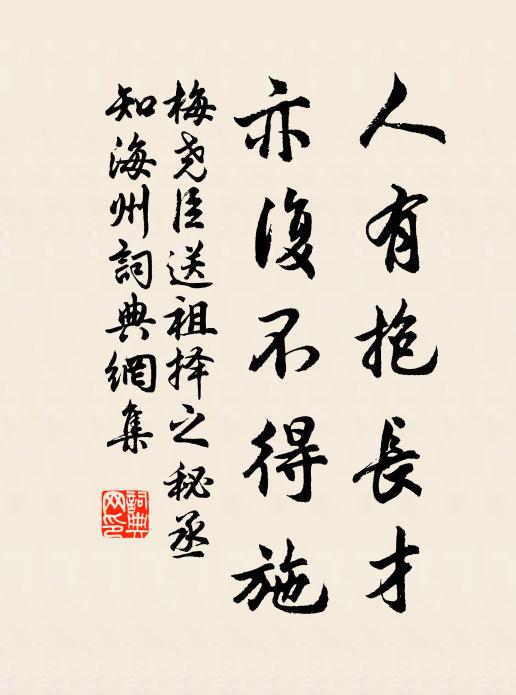 人有抱長才
亦復不得施
梅尧臣送祖择之秘丞
知海州詞典網集
詞典网印